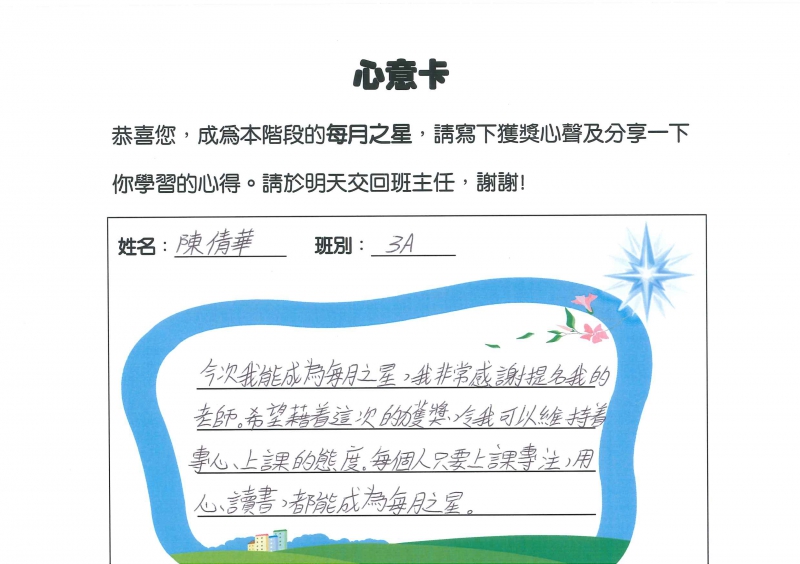 心意卡
恭喜您，成為本階段的每月之星，請寫下獲獎心聲及分享一下
你學習的心得。請於明天交回班主任，謝謝!
姓名：陳倩華 班別：3A
今次我能成為每月之星，我非常感謝提名我的
老師。希望藉着這次的獲獎，令我可以維持着
專心上課的態度。每個人只要上課專注，用
心讀書，都能成為每月之星。